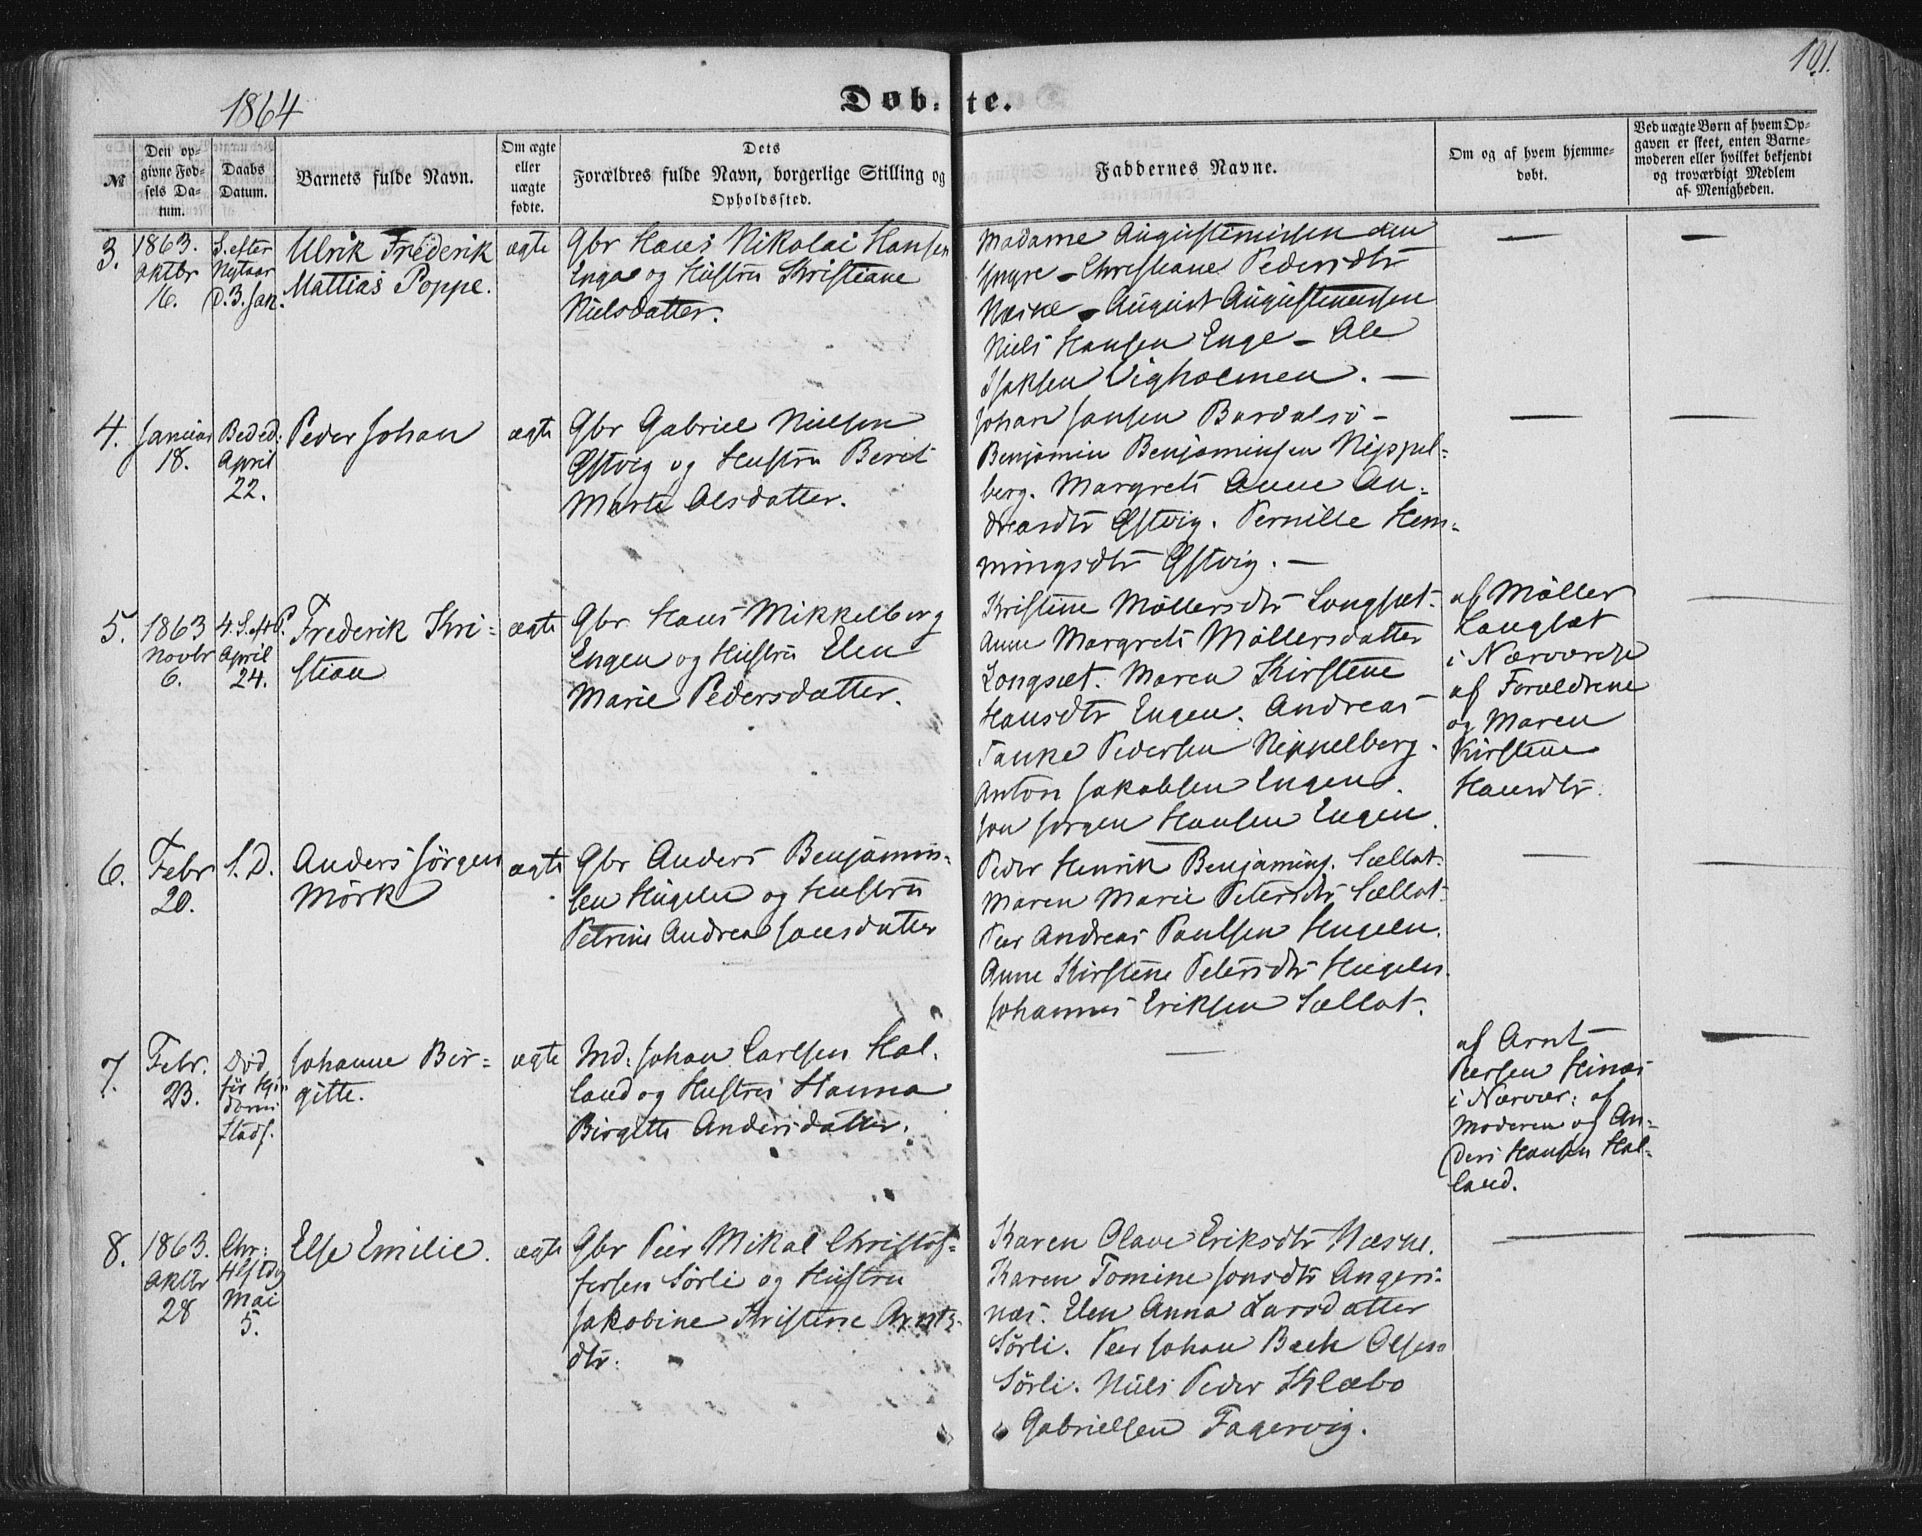 101.
1864
Døbte.
№
Den op-
givne Fød-
sels Da-
tum.
Daabs
Datum.
Barnets fulde Navn.
Om ægte
eller
uægte
fødte.
Dets
Forældres fulde Navn, borgerlige Stilling og
Opholdssted.
Faddernes Navne.
Om og af hvem hjemme-
døbt.
Ved uægte Børn af hvem Op-
gaven er skeet, enten Barne-
moderen eller hvilket bekjendt
og troværdigt Medlem
af Menigheden.
3.
1863.
Oktbr
16.
S. efter
Nytaar
d. 3. Jan.
Ulrik Frederik
Mattias Poppe.
ægte
Gbr Hans Nikolai Hansen
Enge og Hustru Kristiane
Nielsdatter.
Madame Augustinussen
Christiane Pedersdtr
Næsne - August Augustinussen
Niels Hansen Enge - Ole
Isaksen Vigholmen. —
—
—
4.
Januar
18.
Beded.
April
22.
Peder Johan
ægte
Gbr Gabriel Nielsen
Østvig og Hustru Berit
Marte Olsdatter.
Johan Jansen Bardalsø -
Benjamin Benjaminsen Nippel-
berg. Margrete Anne An-
dreasdtr Østvig. Pernille Hem-
mingsdtr Østvig. —
—
—
5.
1863
Novbr
6.
4. S. eft P.
April
24.
Frederik Kri-
stian
ægte
Gbr Hans Mikkelborg
Engen og Hustru Elen
Marie Pedersdatter.
Kristine Möllersdtr Langsæt.
Anne Margrete Möllersdatter
Langsæt. Maren Kirstine
Hansdtr Engen. Andreas
Tanke Pedersen Nippelberg.
Anton Jakobsen Engen.
Jon Jørgen Hansen Engen.
af Möller
Langsæt
i Nærværelse
af Forældrene
og Maren
Kirstine
Hansdtr.
—
6.
Febr
20.
S. D.
Anders Jørgen
Mörk
ægte
Gbr Anders Benjamin-
sen Hugelen og Hustru
Petrine Andrea Jansdatter
Peder Henrik Benjamins. Sællat.
Maren Marie Petersdtr Sællat.
Peer Andreas Paulsen Hugelen.
Anne Kirstine Petersdtr Hugelen.
Johannes Eriksen Sællat.
—
—
7.
Febr.
23.
Død
før
Stadf.
Johanne Bir-
gitte.
ægte
Md: Johan Carlsen Hal-
land og Hustru Hanna
Birgitte Andersdatter.
—
af Arnt
Peersen Hinas
i Nærvær: af
Moderen og An-
ders Hansen Hal-
land.
—
8.
1863.
Oktbr
28
Chr:
Hftdg
Mai
5.
Else Emilie.
ægte
Gbr Peer Mikal Christof-
fersen Sörli og Hustru
Jakobine Kristine Arnts-
dtr.
Karen Olave Eriksdtr Næsne.
Karen Tomine Jonsdtr Angers-
næs. Elen Anna Larsdatter
Sörli. Peer Johan Bech Olsen
Sörli. Niels Peder Klæbo
Gabrielsen Fagervig.
—
—